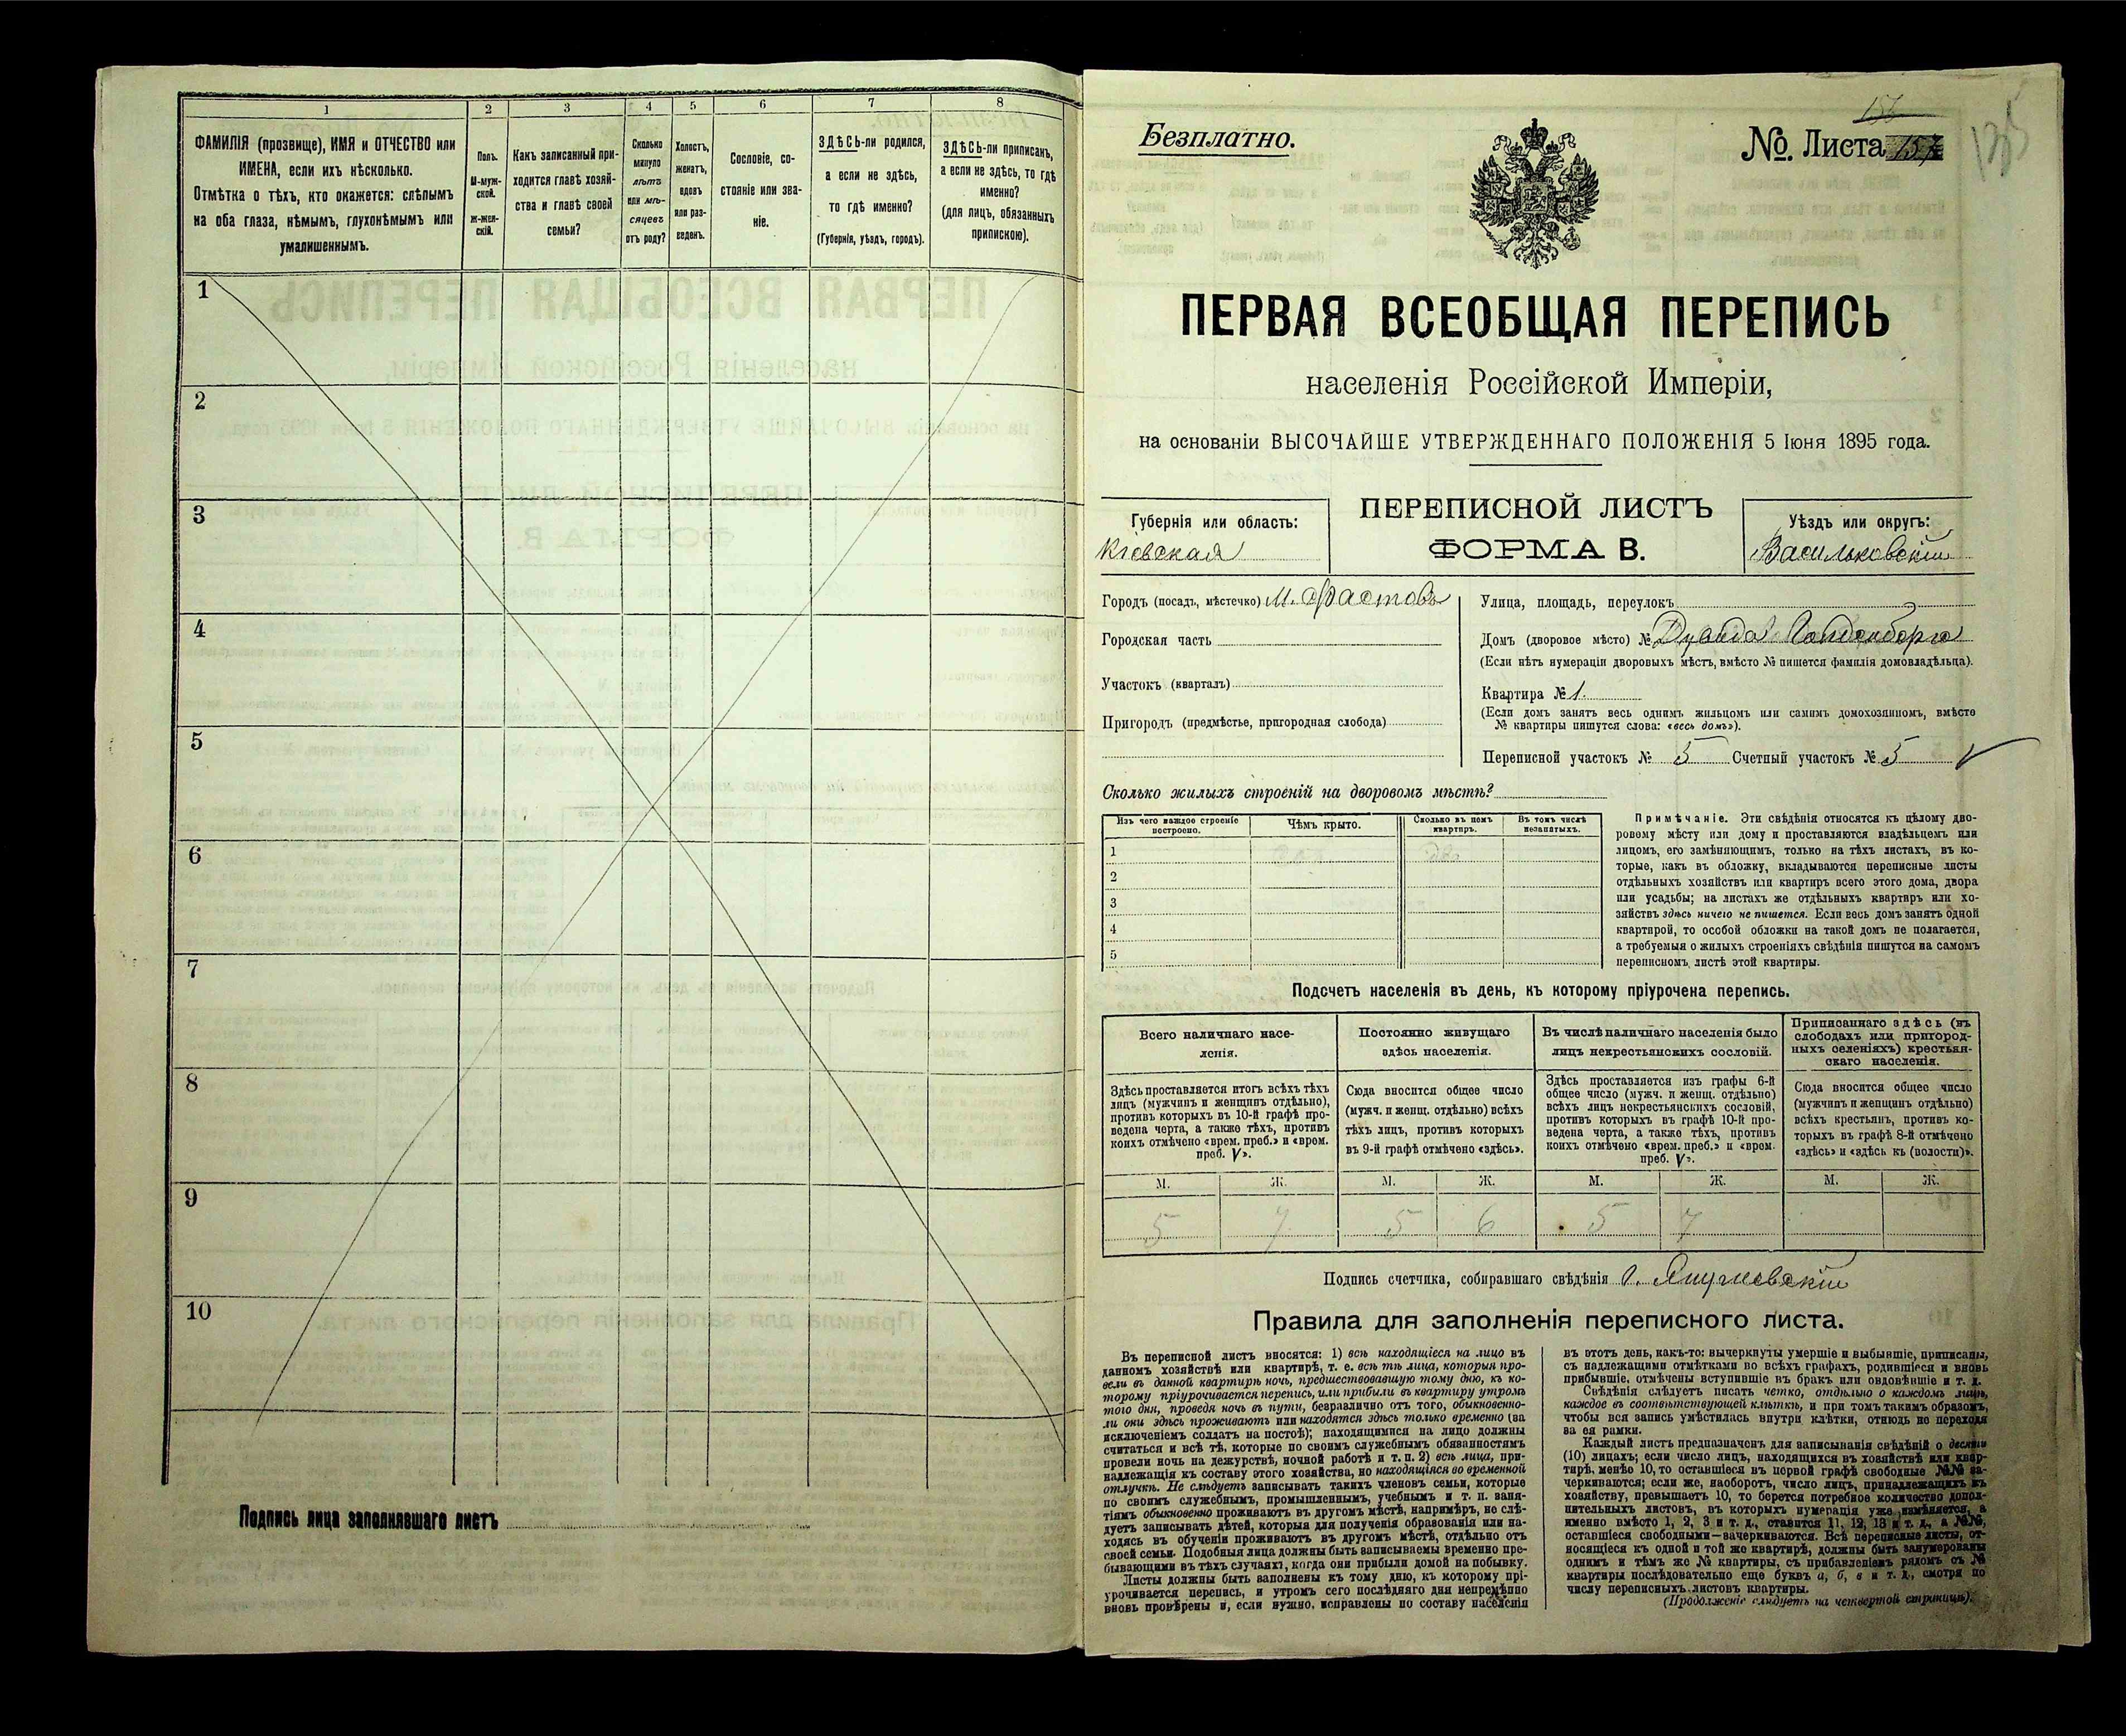 1 2 3 4 5 6 7 8
ФАМИЛІЯ (прозвище), ИМЯ и ОТЧЕСТВО или
ИМЕНА, если ихъ нѣсколько.
Отмѣтка о тѣхъ, кто окажется: слѣпымъ
на оба глаза, нѣмымъ, глухонѣмымъ или
умалишеннымъ.
Полъ.
М-муж-
ской.
Ж-жен-
скій.
Какъ записанный при-
ходится главѣ хозяй-
ства и главѣ своей
семьи?
Сколько
минуло
лѣтъ
или мѣ-
сяцевъ
отъ роду?
Холостъ,
женатъ,
вдовъ
или раз-
веденъ.
Сословіе, со-
стояніе или зва-
ніе.
ЗДѢСЬ-ли родился,
а если не здѣсь,
то гдѣ именно?
(Губернія, уѣздъ, городъ).
ЗДѢСЬ-ли приписанъ,
а если не здѣсь, то гдѣ
именно?
(для лицъ, обязанныхъ
припискою).
1
2
3
4
5
6
7
8
9
10
Подпись лица заполнявшаго листъ
Безплатно.
156
№. Листа 157
135
ПЕРВАЯ ВСЕОБЩАЯ ПЕРЕПИСЬ
населенія Россійской Имперіи,
на основаніи ВЫСОЧАЙШЕ УТВЕРЖДЕННАГО ПОЛОЖЕНІЯ 5 Іюня 1895 года.
Губернія или область:
Кіевская
ПЕРЕПИСНОЙ ЛИСТЪ
ФОРМА В.
Уѣздъ или округъ:
Васильковскій
Городъ (посадъ, мѣстечко) м. Фастовъ
Городская часть
Участокъ (кварталъ)
Пригородъ (предмѣстье, пригородная слобода)
Улица, площадь, переулокъ
Домъ (дворовое мѣсто) №
(Если нѣтъ нумераціи дворовыхъ мѣстъ, вмѣсто № пишется фамилія домовладѣльца).
Квартира № 1.
(Если домъ занятъ весь однимъ жильцомъ или самимъ домохозяиномъ, вмѣсто
№ квартиры пишутся слова: «весь домъ»).
Переписной участокъ № 5 Счетный участокъ № 5
Сколько жилыхъ строеній на дворовомъ мѣстѣ?
Изъ чего каждое строеніе
построено.
Чѣмъ крыто.
Сколько въ немъ
квартиръ.
Въ томъ числѣ
незанятыхъ.
1
2
3
4
5
Примѣчаніе. Эти свѣдѣнія относятся къ цѣлому дво-
ровому мѣсту или дому и проставляются владѣльцемъ или
лицомъ, его замѣняющимъ, только на тѣхъ листахъ, въ ко-
торые, какъ въ обложку, вкладываются переписные листы
отдѣльныхъ хозяйствъ или квартиръ всего этого дома, двора
или усадьбы; на листахъ же отдѣльныхъ квартиръ или хо-
зяйствъ здѣсь ничего не пишется. Если весь домъ занятъ одной
квартирой, то особой обложки на такой домъ не полагается,
а требуемыя о жилыхъ строеніяхъ свѣдѣнія пишутся на самомъ
переписномъ листѣ этой квартиры.
Подсчетъ населенія въ день, къ которому пріурочена перепись.
Всего наличнаго насе-
ленія.
Здѣсь проставляется итогъ всѣхъ тѣхъ
лицъ (мужчинъ и женщинъ отдѣльно),
противъ которыхъ въ 10-й графѣ про-
ведена черта, а также тѣхъ, противъ
коихъ отмѣчено «врем. преб.» и «врем.
преб. V».
Постоянно живущаго
здѣсь населенія.
Сюда вносится общее число
(мужч. и женщ. отдѣльно) всѣхъ
тѣхъ лицъ, противъ которыхъ
въ 9-й графѣ отмѣчено «здѣсь».
Въ числѣ наличнаго населенія было
лицъ некрестьянскихъ сословій.
Здѣсь проставляется изъ графы 6-й
общее число (мужч. и женщ. отдѣльно)
всѣхъ лицъ некрестьянскихъ сословій,
противъ которыхъ въ графѣ 10-й про-
ведена черта, а также тѣхъ, противъ
коихъ отмѣчено «врем. преб.» и «врем.
преб. V».
Приписаннаго здѣсь (въ
слободахъ или пригород-
ныхъ селеніяхъ) крестьян-
скаго населенія.
Сюда вносится общее число
(мужчинъ и женщинъ отдѣльно)
всѣхъ крестьянъ, противъ ко-
торыхъ въ графѣ 8-й отмѣчено
«здѣсь» и «здѣсь къ (волости)».
М. Ж. М. Ж. М. Ж. М. Ж.
5 7 5 6 5 7
Подпись счетчика, собиравшаго свѣдѣнія
Правила для заполненія переписного листа.
Въ переписной листъ вносятся: 1) всѣ находящіеся на лицо въ
данномъ хозяйствѣ или квартирѣ, т. е. всѣ тѣ лица, которыя про-
вели въ данной квартирѣ ночь, предшествовавшую тому дню, къ ко-
торому пріурочивается перепись, или прибыли въ квартиру утромъ
того дня, проведя ночь въ пути, безразлично отъ того, обыкновенно-
ли они здѣсь проживаютъ или находятся здѣсь только временно (за
исключеніемъ солдатъ на постоѣ); находящимися на лицо должны
считаться и всѣ тѣ, которые по своимъ служебнымъ обязанностямъ
провели ночь на дежурствѣ, ночной работѣ и т. п. 2) всѣ лица, при-
надлежащія къ составу этого хозяйства, но находящіяся во временной
отлучкѣ. Не слѣдуетъ записывать такихъ членовъ семьи, которые
по своимъ служебнымъ, промышленнымъ, учебнымъ и т. п. заня-
тіямъ обыкновенно проживаютъ въ другомъ мѣстѣ, напримѣръ, не слѣ-
дуетъ записывать дѣтей, которыя для полученія образованія или на-
ходясь въ обученіи проживаютъ въ другомъ мѣстѣ, отдѣльно отъ
своей семьи. Подобныя лица должны быть записываемы временно пре-
бывающими въ тѣхъ случаяхъ, когда они прибыли домой на побывку.
Листы должны быть заполнены къ тому дню, къ которому прі-
урочивается перепись, и утромъ сего послѣдняго дня непремѣнно
вновь провѣрены и, если нужно, исправлены по составу населенія
въ этотъ день, какъ-то: вычеркнуты умершіе и выбывшіе, приписаны,
съ надлежащими отмѣтками во всѣхъ графахъ, родившіеся и вновь
прибывшіе, отмѣчены вступившіе въ бракъ или овдовѣвшіе и т. д.
Свѣдѣнія слѣдуетъ писать четко, отдѣльно о каждомъ лицѣ,
каждое въ соотвѣтствующей клѣткѣ, и при томъ такимъ образомъ,
чтобы вся запись умѣстилась внутри клѣтки, отнюдь не переходя
за ея рамки.
Каждый листъ предназначенъ для записыванія свѣдѣній о десяти
(10) лицахъ; если число лицъ, находящихся въ хозяйствѣ или квар-
тирѣ, менѣе 10, то оставшіеся въ первой графѣ свободные №№ за-
черкиваются; если же, наоборотъ, число лицъ, принадлежащихъ къ
хозяйству, превышаетъ 10, то берется потребное количество допол-
нительныхъ листовъ, въ которыхъ нумерація уже измѣняется, а
именно вмѣсто 1, 2, 3 и т. д., ставится 11, 12, 13 и т. д., а №№,
оставшіеся свободными—зачеркиваются. Всѣ переписные листы, от-
носящіеся къ одной и той же квартирѣ, должны быть занумерованы
однимъ и тѣмъ же № квартиры, съ прибавленіемъ рядомъ съ №
квартиры послѣдовательно еще буквъ а, б, в и т. д., смотря по
числу переписныхъ листовъ квартиры.
(Продолженіе слѣдуетъ на четвертой страницѣ).